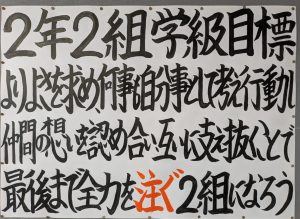 2年2組学級目標
よりよさを求め何事も自分事として考え行動し
仲間の想いを認め合い互いに支え抜くことで
最後まで全力を注ぐ2組になろう